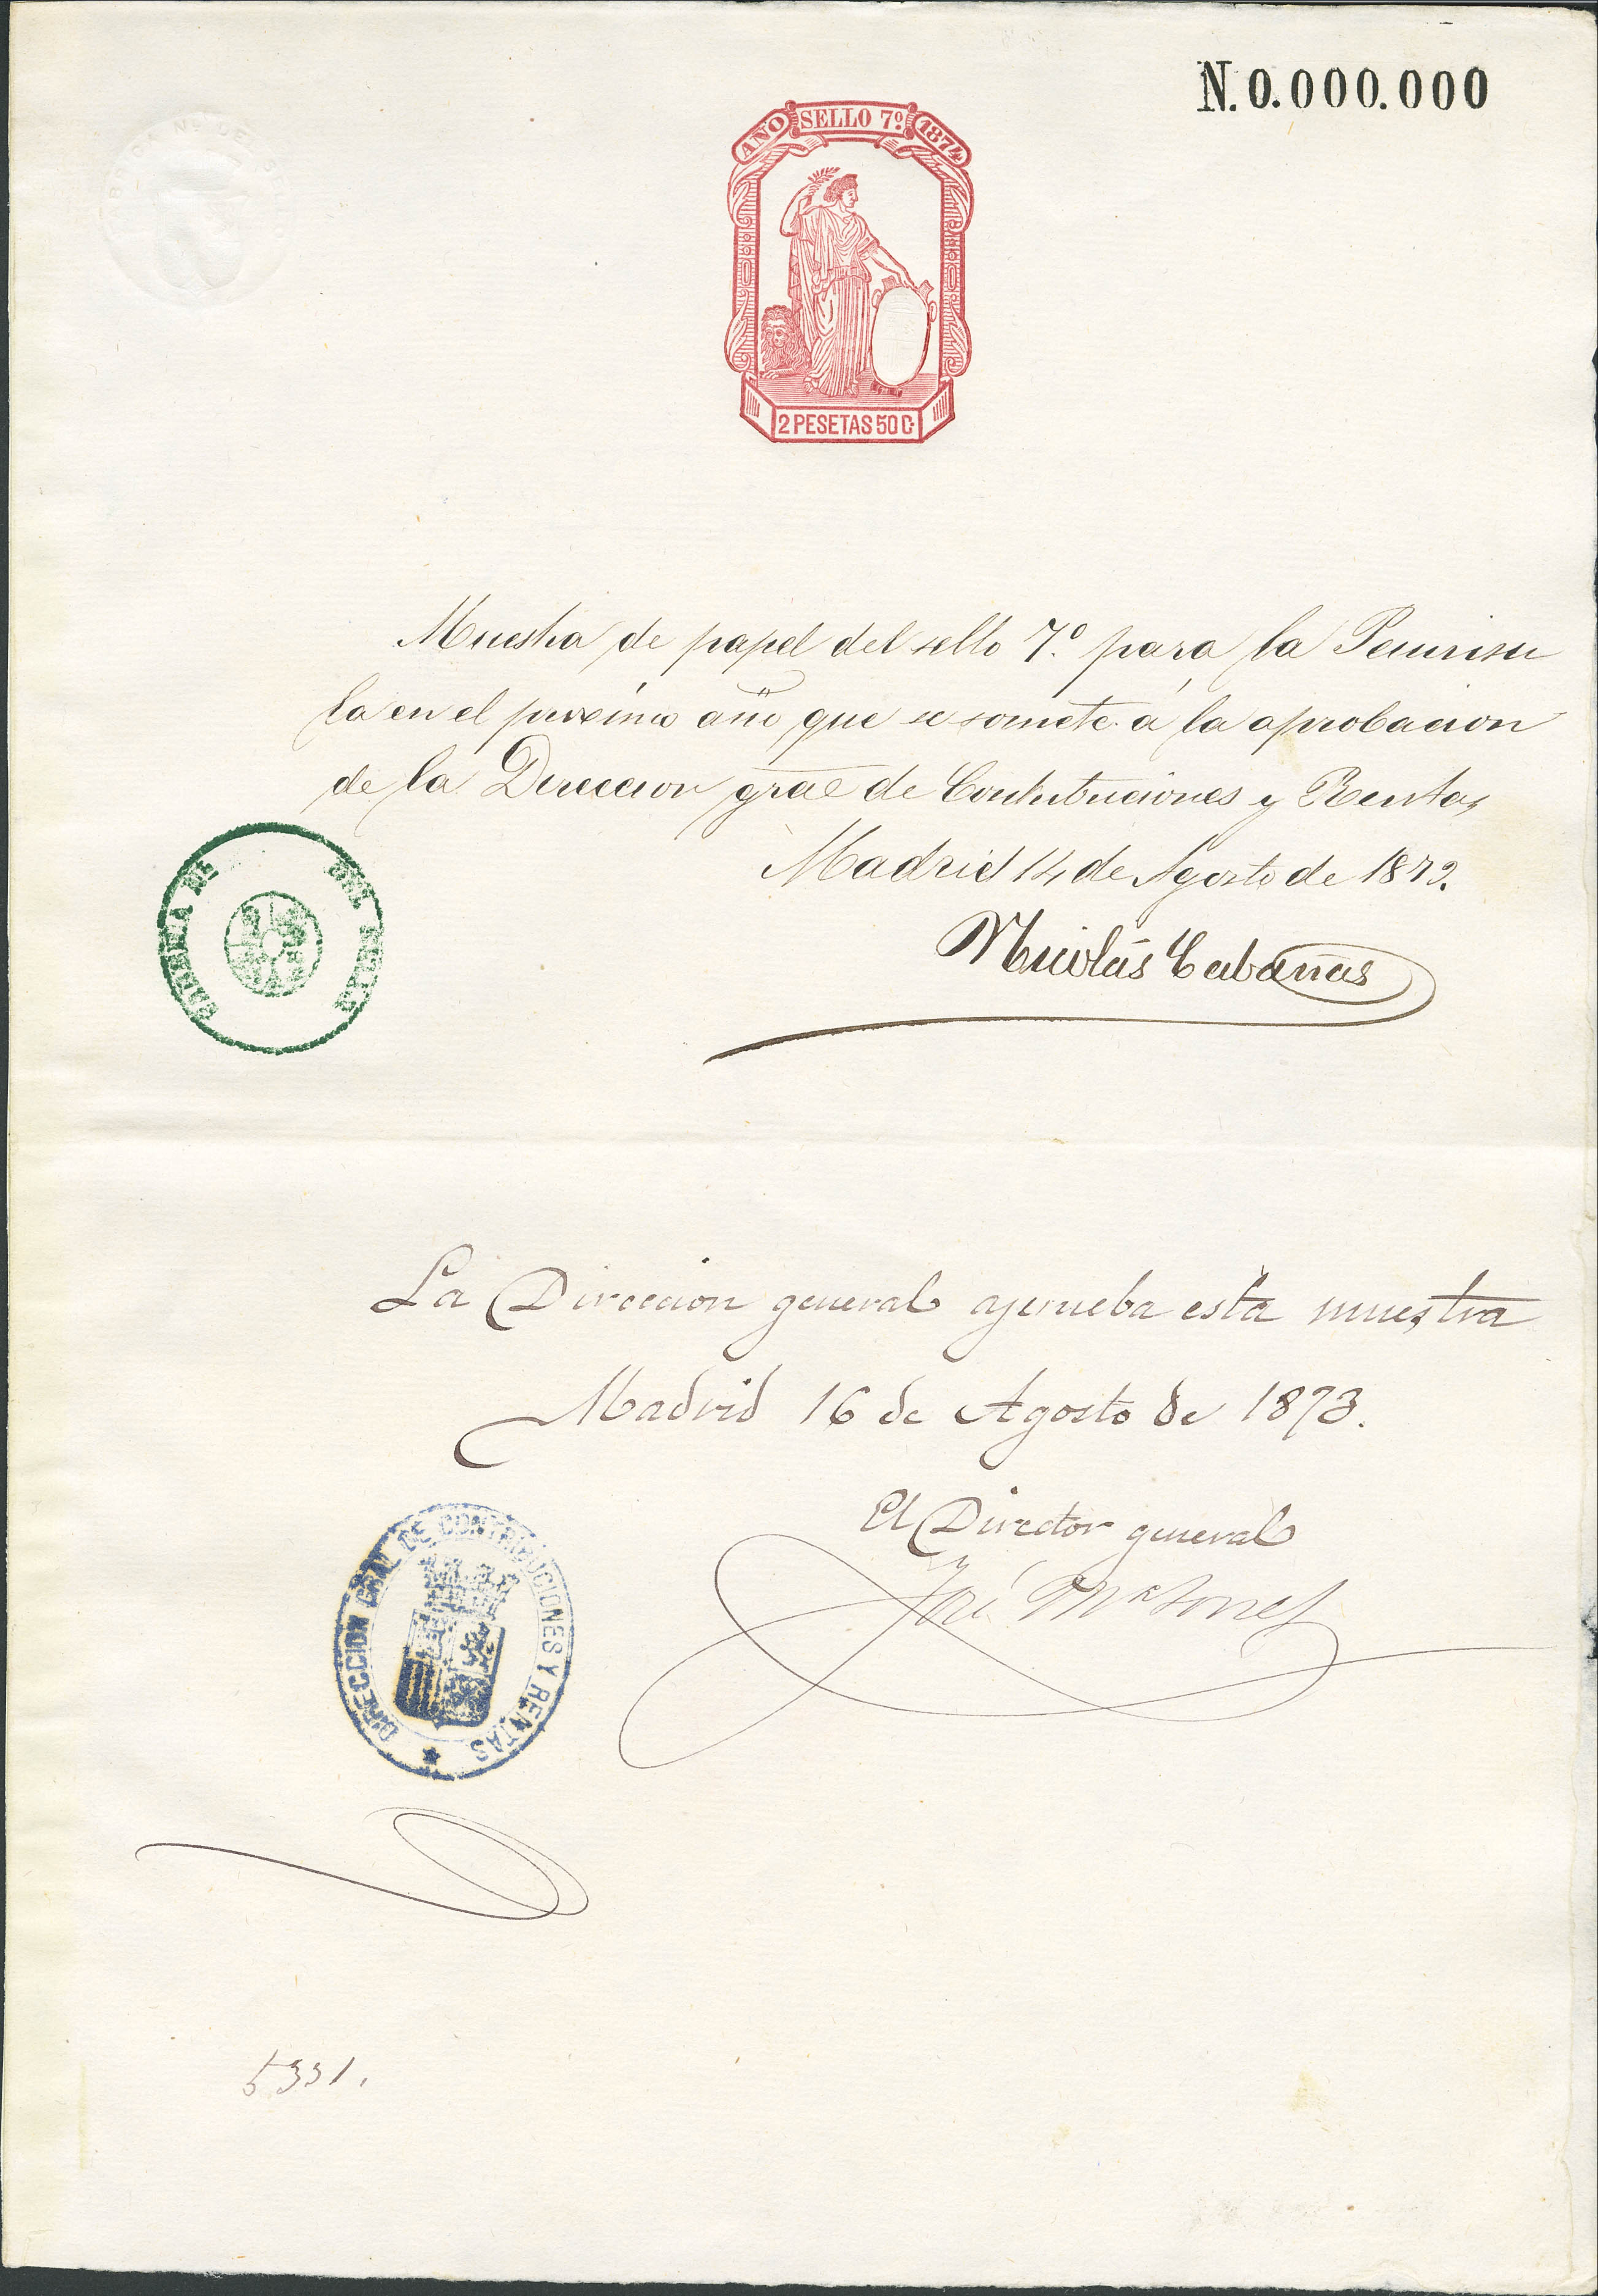 N. 0.000.000
AÑO SELLO 7º 1874
2 PESETAS 50 C
Muestra de papel del sello 7º. para la Peninsu
la en el proximo año que se somete á la aprobacion
de la Direccion gral de Contribuciones y Rentas
Madrid 14 de Agosto de 1873.
Nicolás Cabañas
La Direccion general aprueba esta muestra
Madrid 16 de Agosto de 1873.
El Director general
José Mª Torres
DIRECCION GRAL DE CONTRIBUCIONES Y RENTAS
5331.